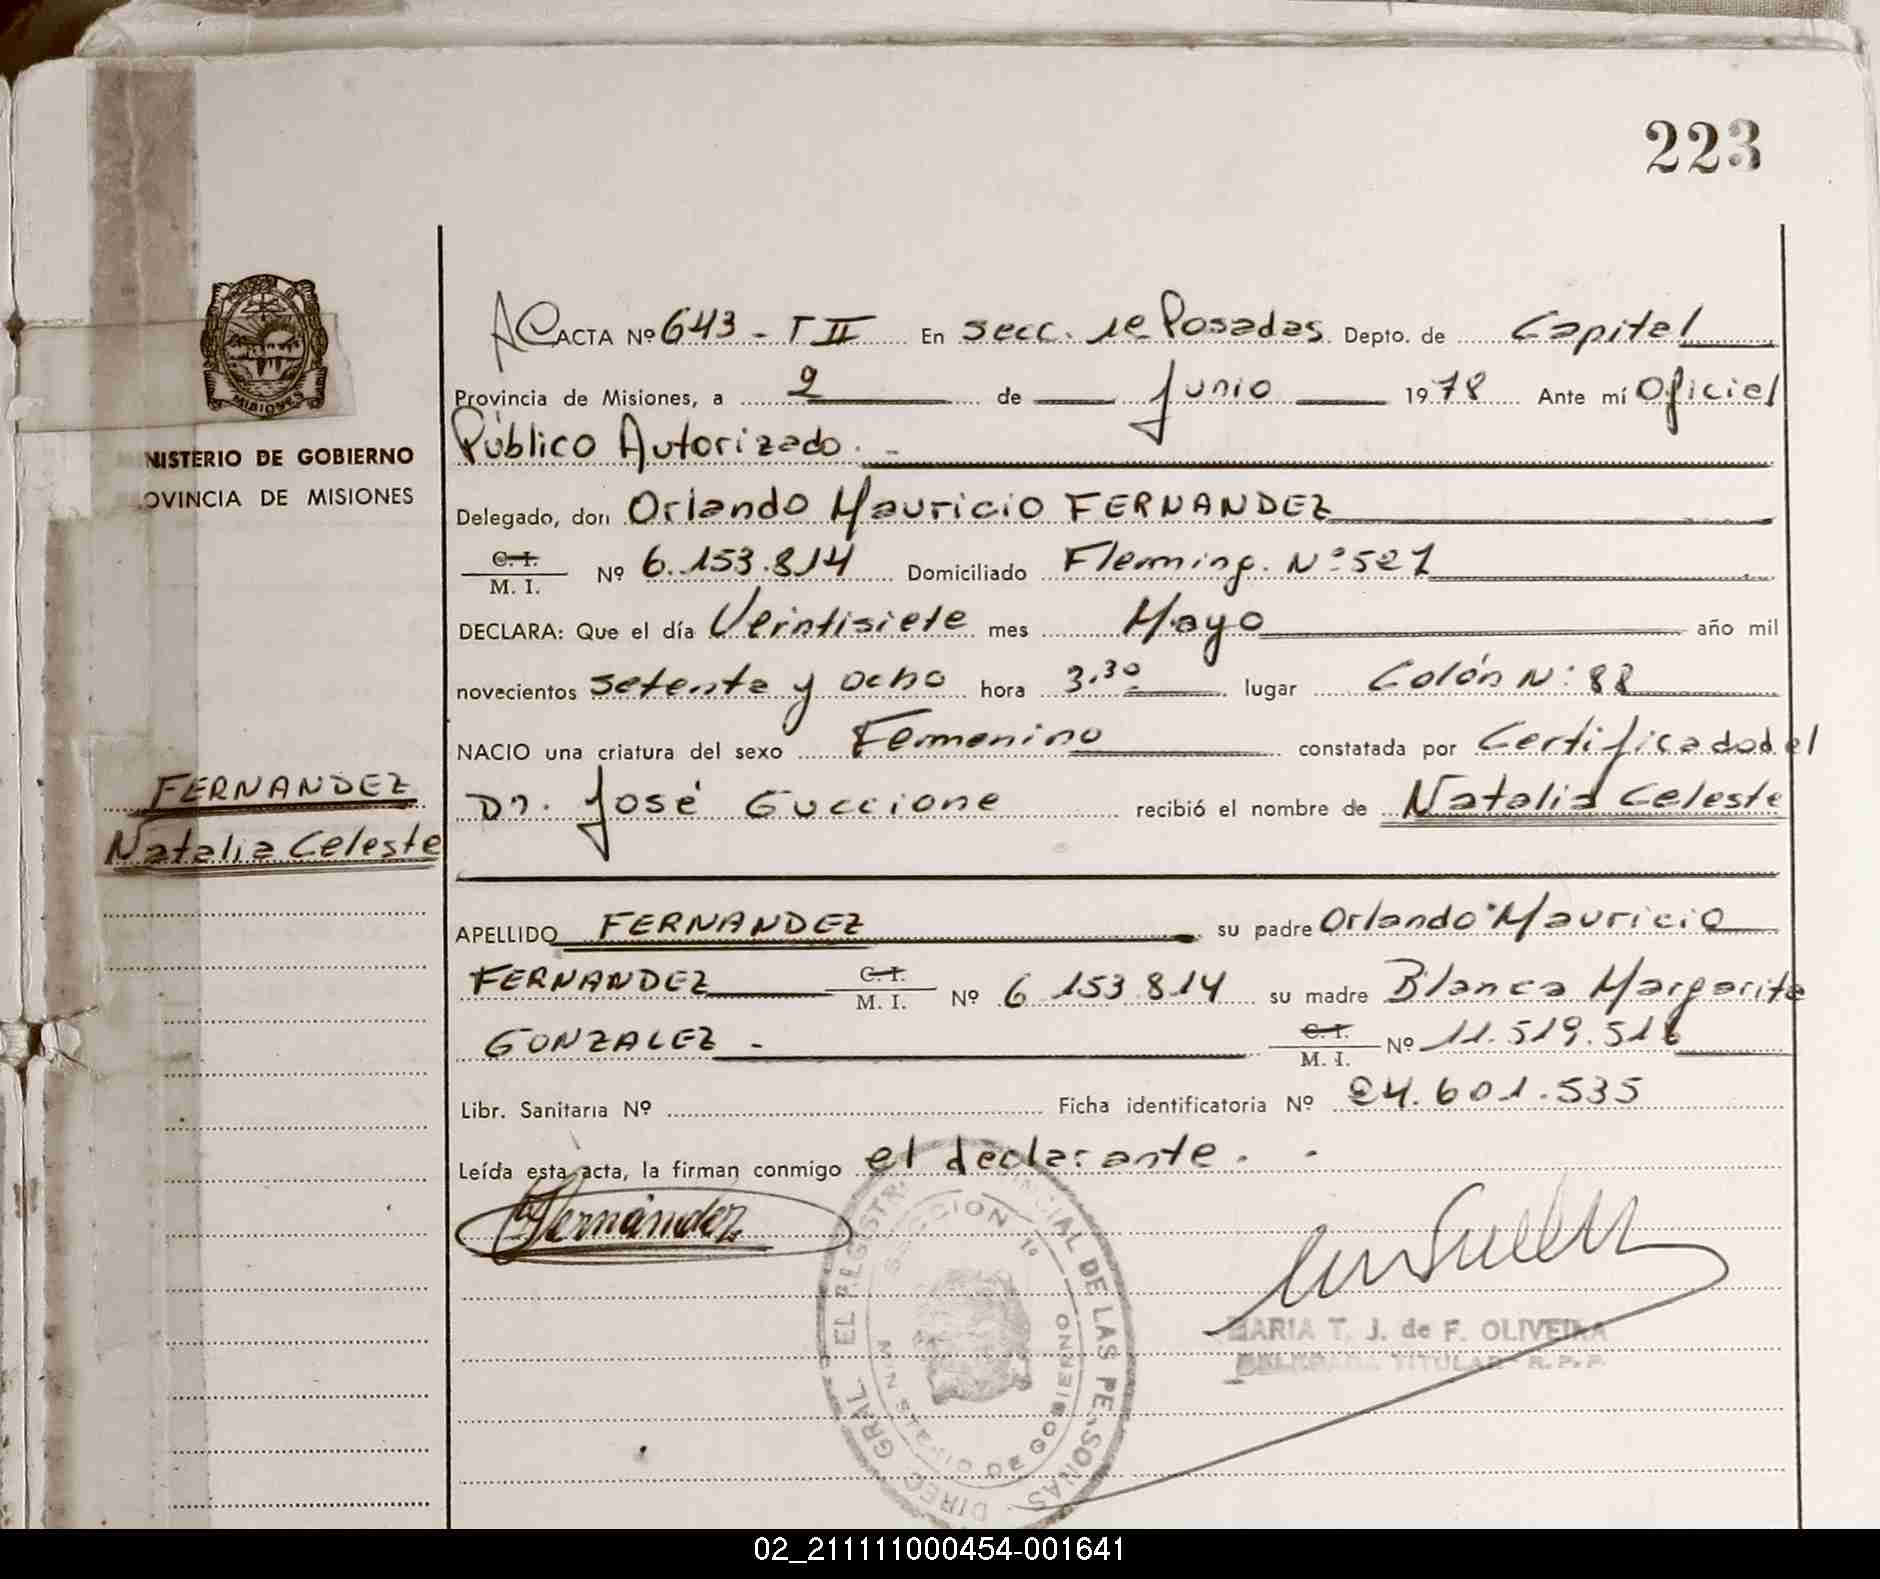 223
ACTA Nº 643 - T II En secc. 1e Posadas Depto. de Capital
Provincia de Misiones, a 2 de Junio 1978 Ante mí Oficial
Público Autorizado.-
MINISTERIO DE GOBIERNO
PROVINCIA DE MISIONES
MISIONES
Delegado, don Orlando Mauricio FERNANDEZ
C. I.
M. I. Nº 6.153.814 Domiciliado Fleming. Nº 527
DECLARA: Que el día Veintisiete mes Mayo año mil
novecientos setenta y ocho hora 3.30 lugar Colón Nº 88
NACIO una criatura del sexo Femenino constatada por Certificado del
Dr. José Guccione recibió el nombre de Natalia Celeste
FERNANDEZ
Natalia Celeste
APELLIDO FERNANDEZ su padre Orlando Mauricio
FERNANDEZ C. I. M. I. Nº 6 153.814 su madre Blanca Margarita
GONZALEZ - C. I. M. I. Nº 11.519.516
Libr. Sanitaria Nº Ficha identificatoria Nº 24.601.535
Leída esta acta, la firman conmigo el declarante. -
Fernández
MARIA T. J. de F. OLIVEIRA
DELEGADA TITULAR R. P. P.
DIREC. GRAL. EL REGISTRO PROVINCIAL DE LAS PERSONAS
SECCION 1ª
MINISTERIO DE GOBIERNO
02_211111000454-001641